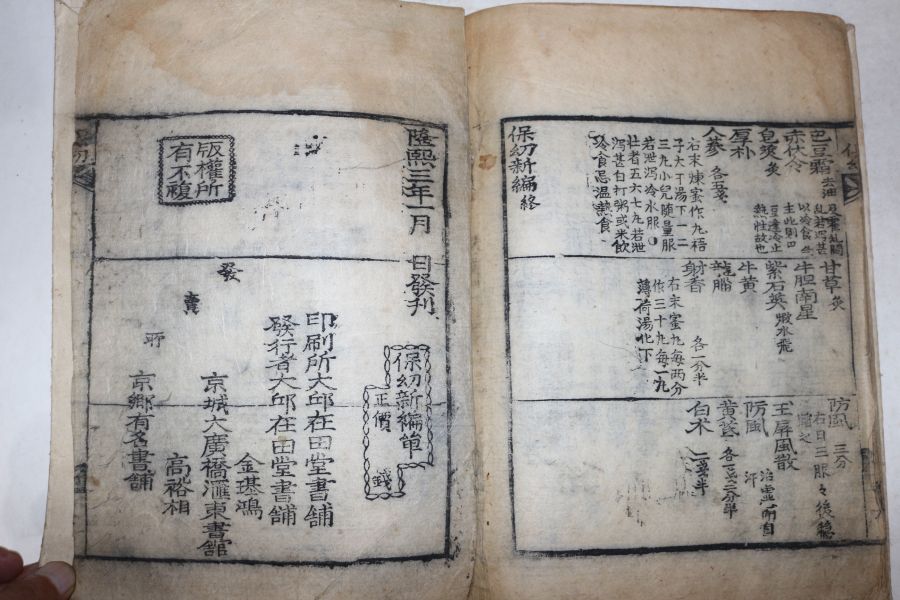 巴豆霜 去油
赤茯令
皂莢 灸
厚朴
人蔘 各五戔
右末煉蜜作丸梧
子大丁湯下一二
三九小兒随量服
若泄泻冷水服
壮者五六七丸若泄
泻甚白打粥或米飲
冷食忌温熱食
保幼新編 終
甘草 灸
牛胆南星
紫石英 煅水飛
牛黃
龍腦
射香 各一分半
右末蜜丸每两分
作三十丸每一丸
薄荷湯化下
防風 三分
玉屏風散
防風
黃芪
白朮 一戔半
隆熙三年一月 日發刋
版權所
有不複
保幼新編單
正價 錢
印刷所大邱在田堂書舖
發行者大邱在田堂書舖
金璂鴻
發賣所
京城大廣橋滙東書舘
高裕相
京鄉有名書舖